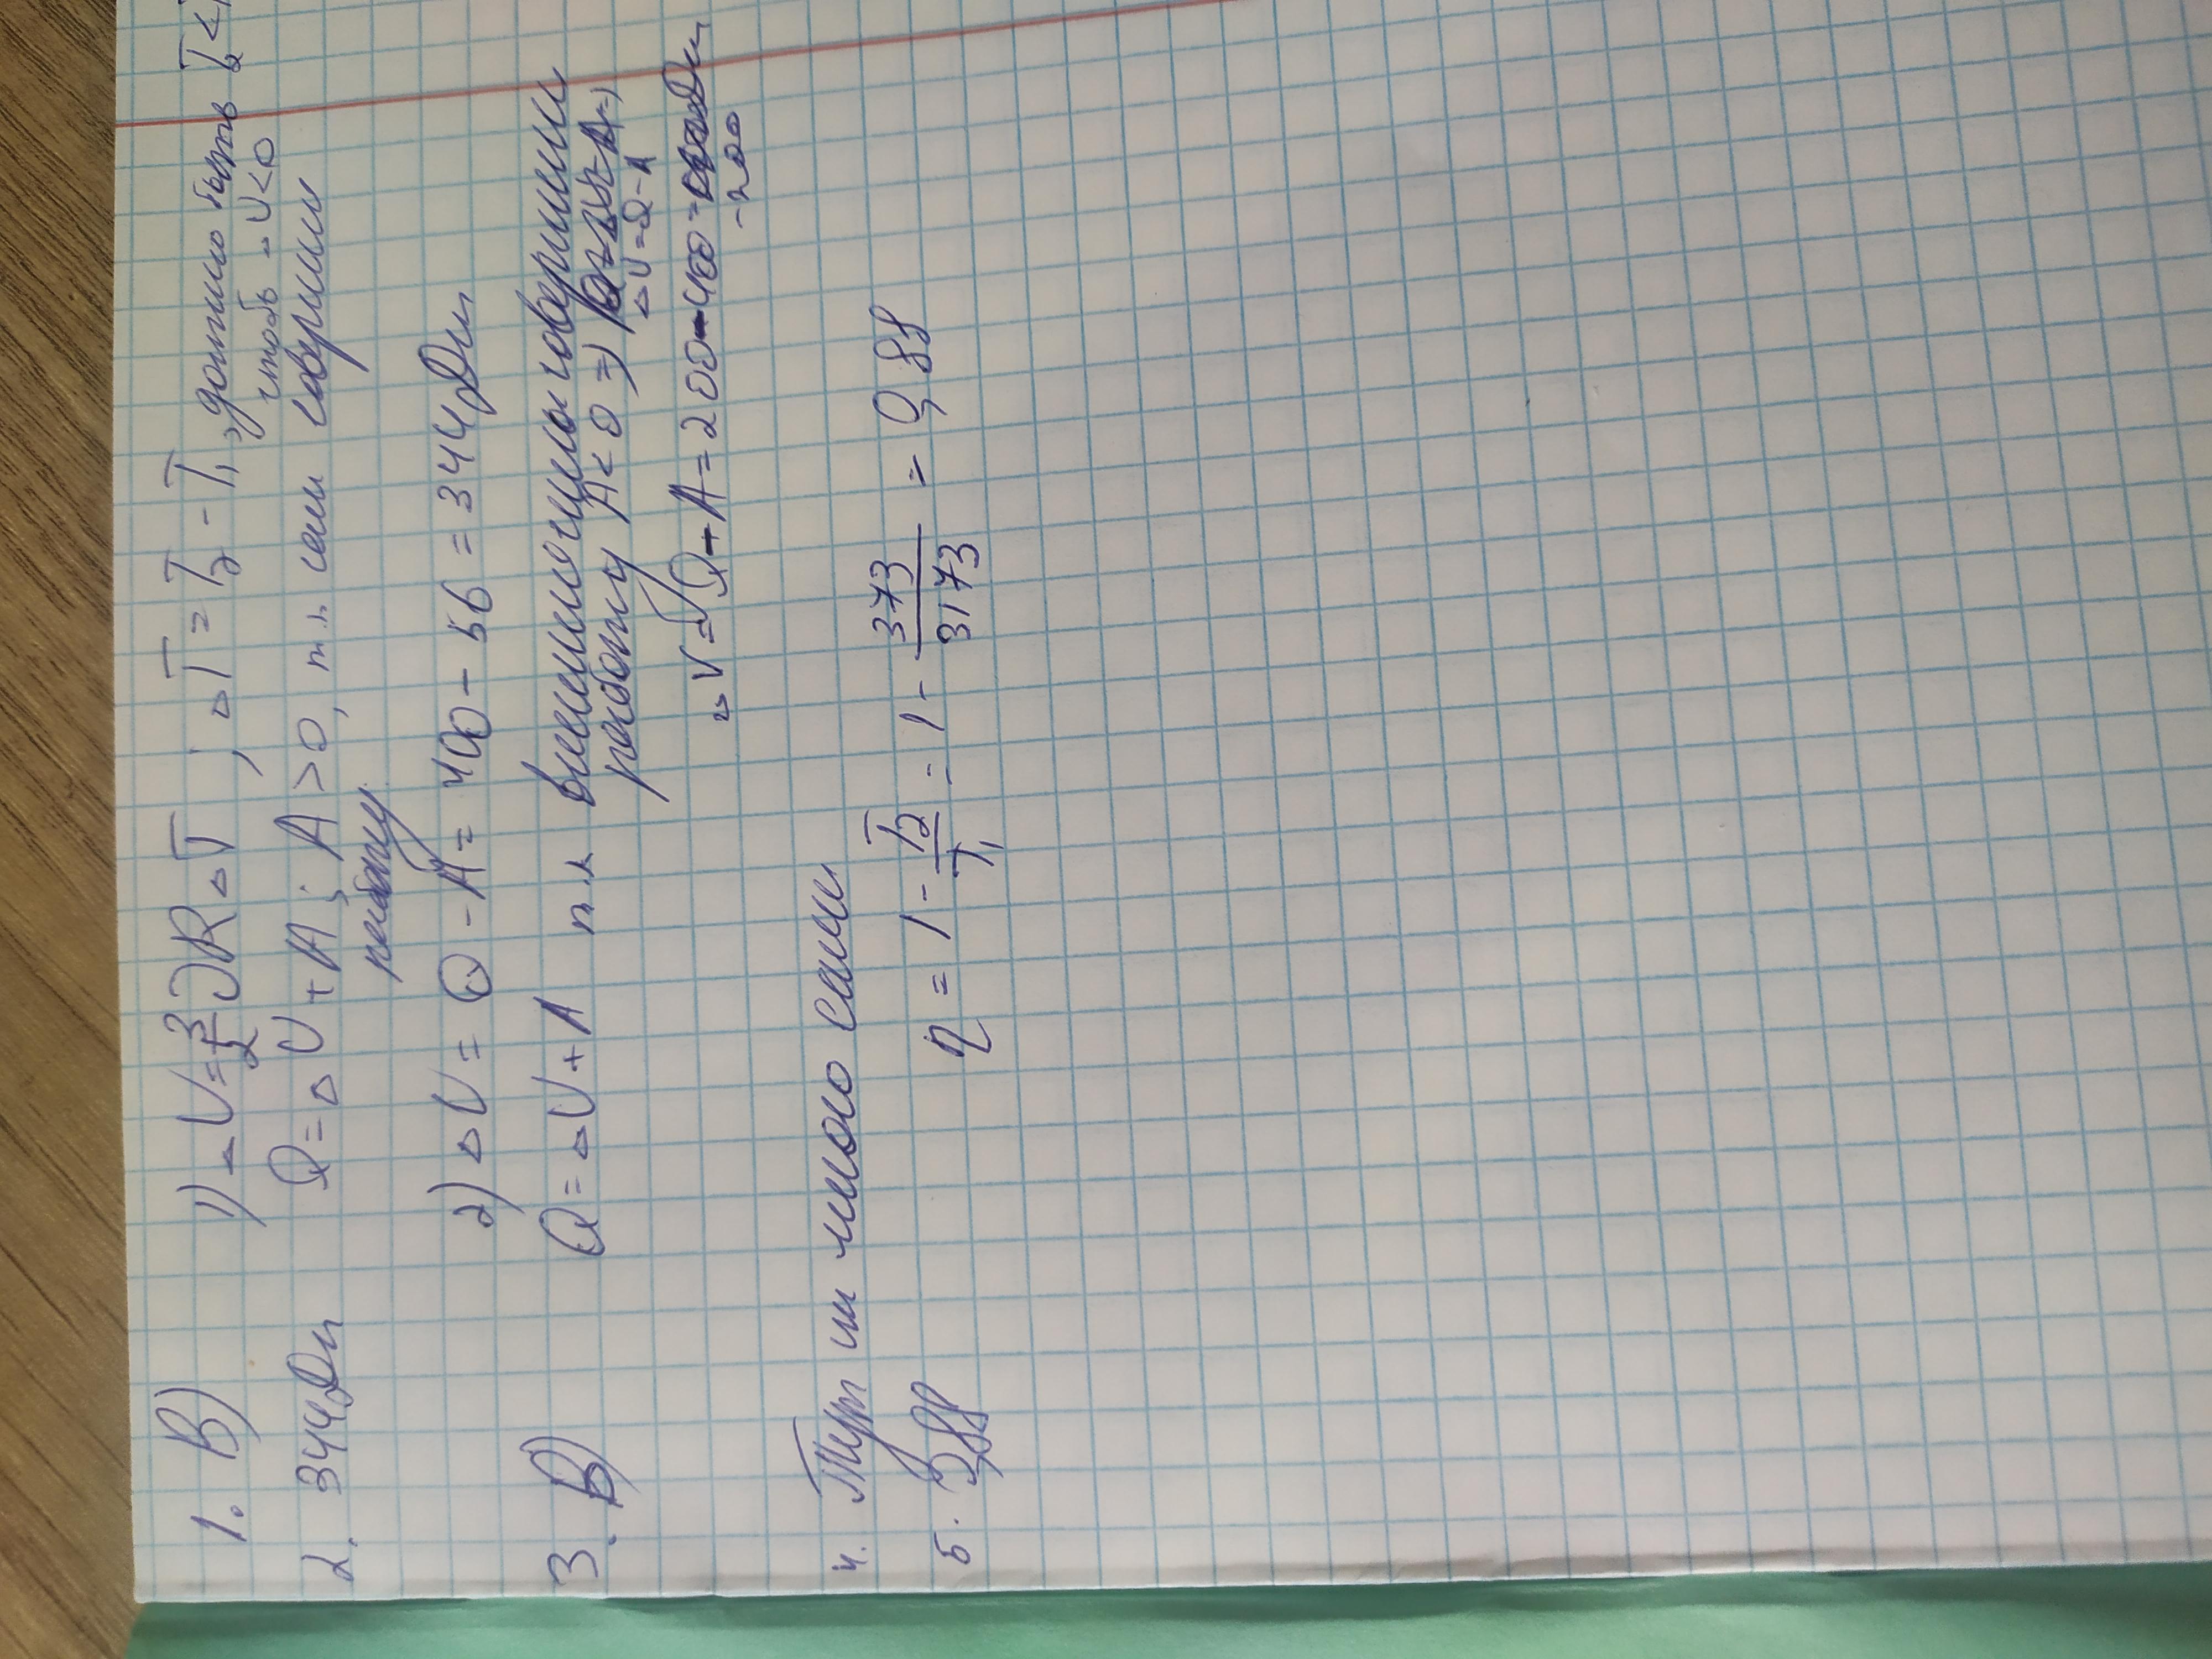 1. В) 1) △U = 3/2 νR△T ; △T = T₂ - T₁, должно быть T₂ <
чтобы △U<0
2. 344Дж Q = △U + A ; A > 0, т.к. сами совершили
работу
2) △U = Q - A = 400 - 56 = 344Дж
3. В) Q = △U + A т.к внешние силы совершили
работу A < 0 =>
△U=Q-A
△U = Q + A = 200 - 400 =
-200
4. Тут их много сами
5. 0,88 η = 1 - T₂/T₁ = 1 - 373/3173 = 0,88